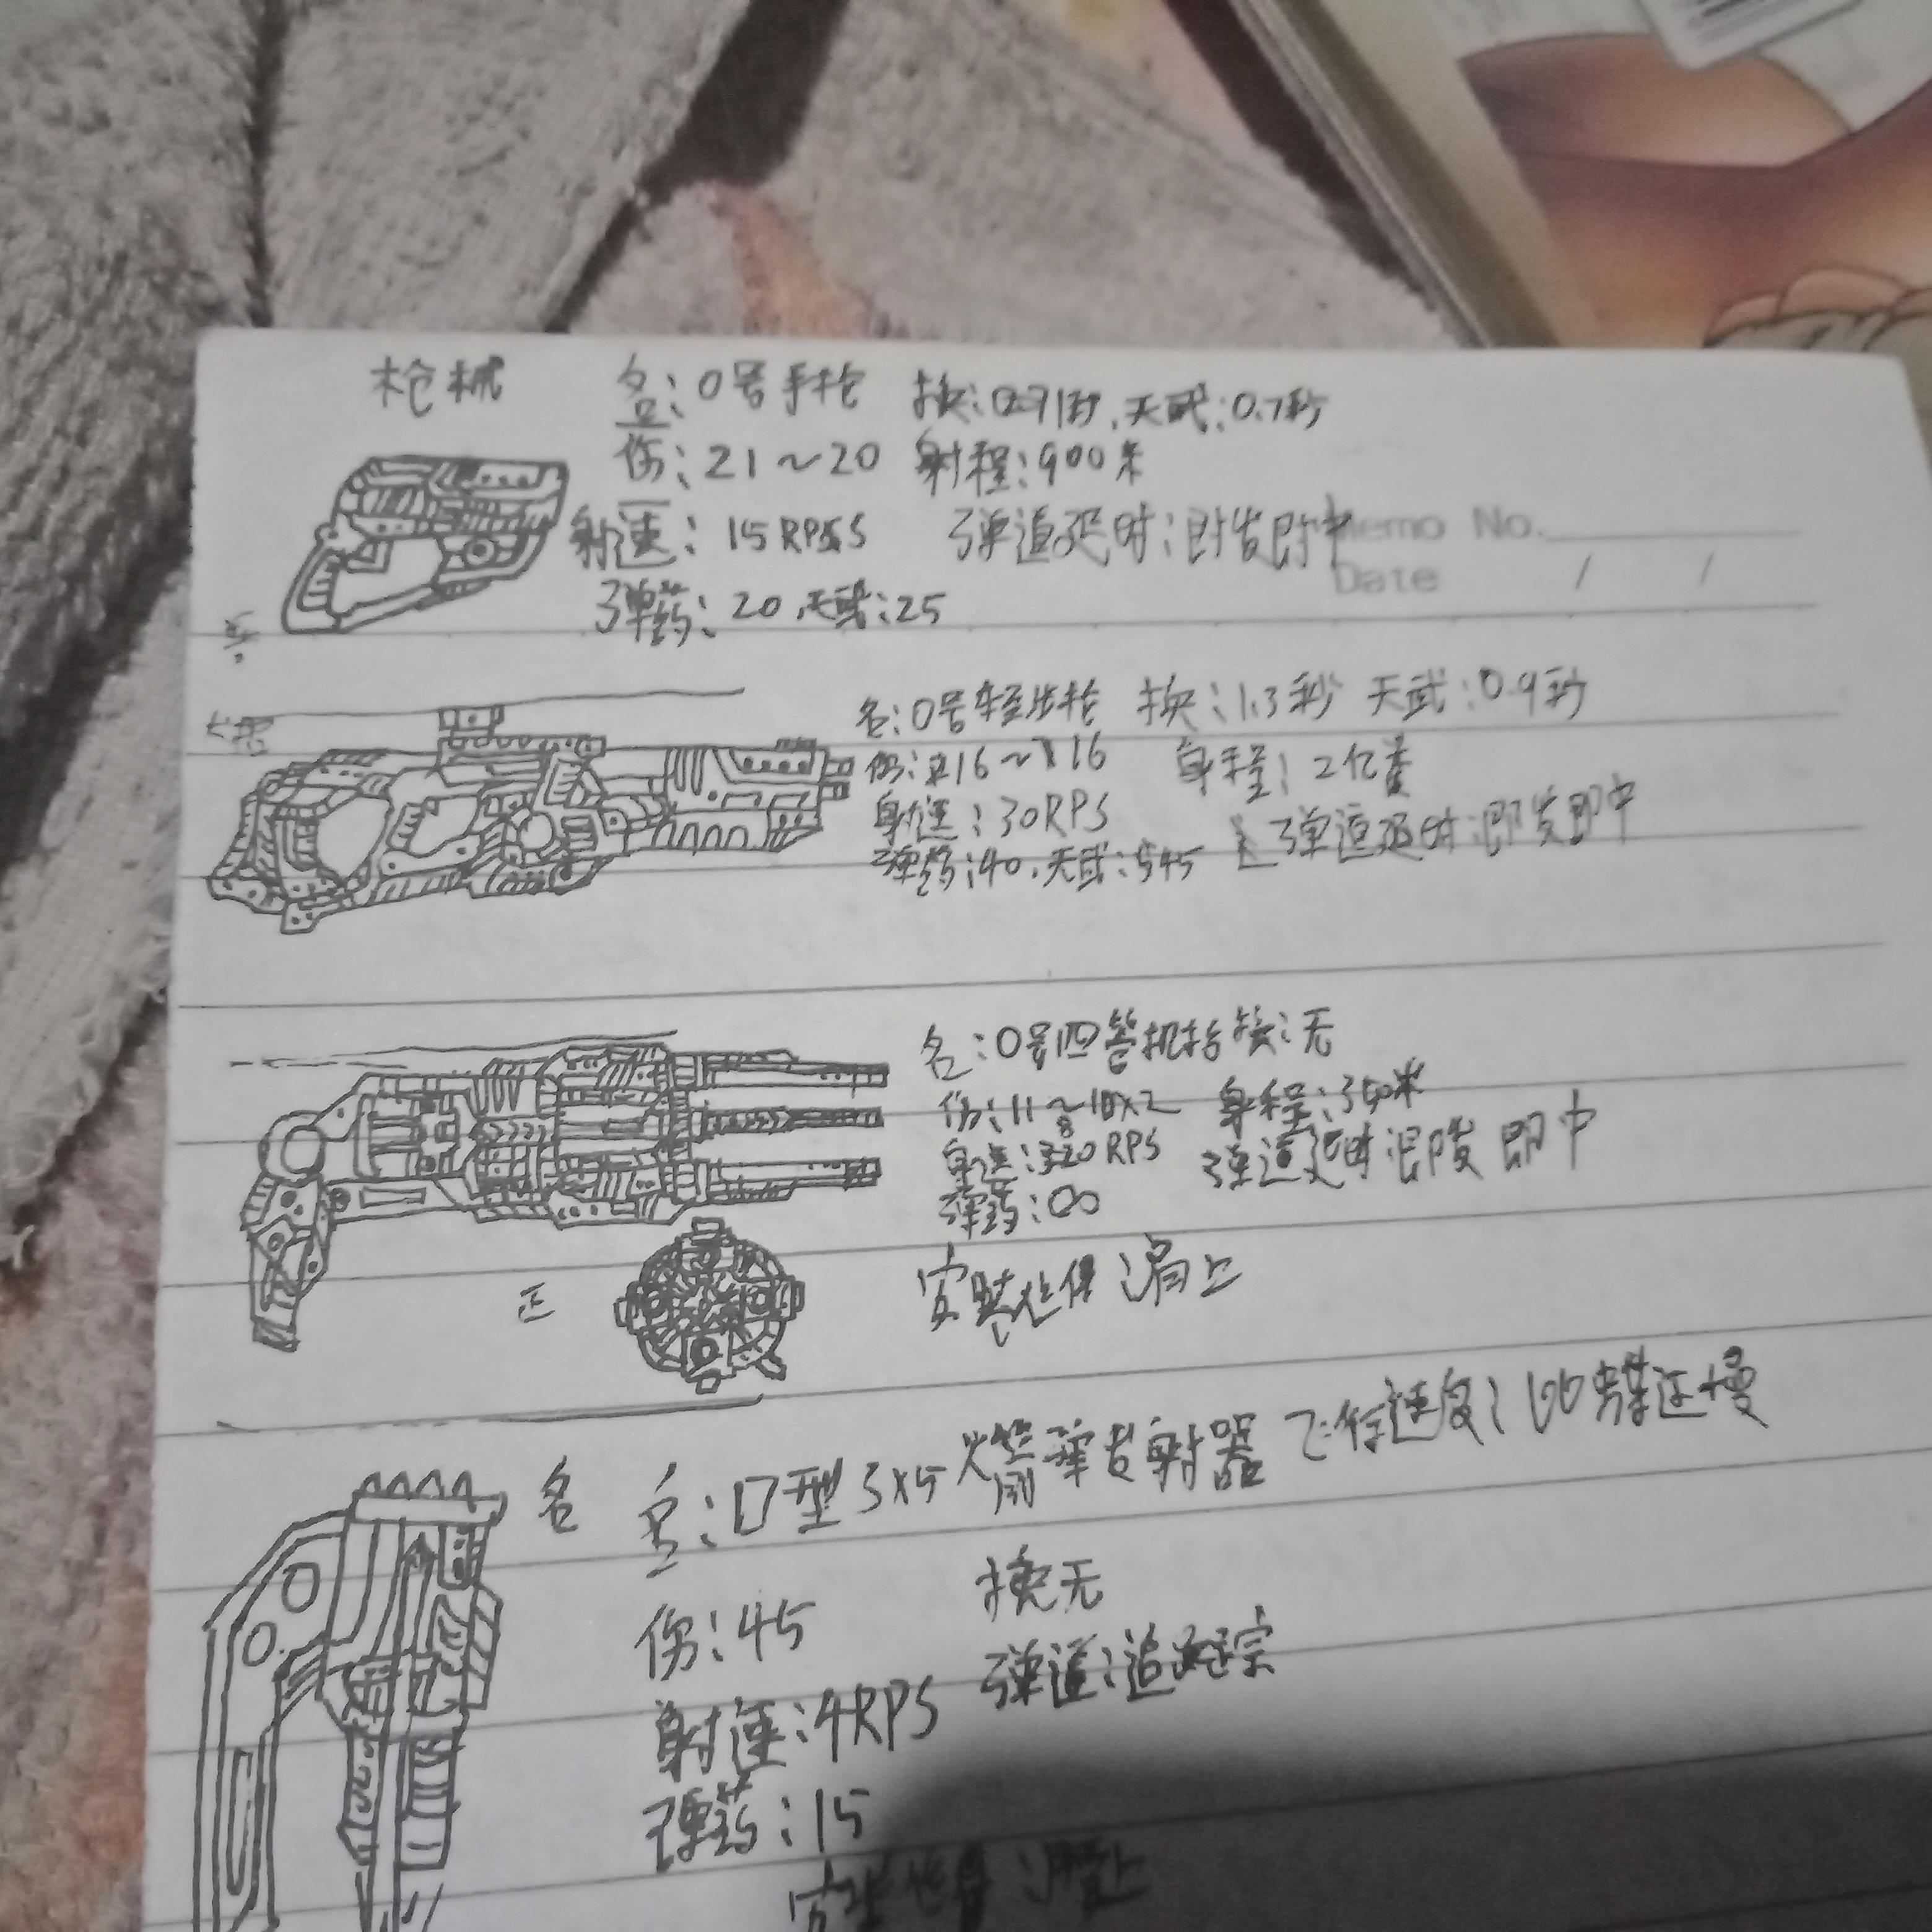 枪械
名：0号手枪 换：0.71秒，天武：0.7秒
伤：21～20 射程：900米
射速：15RPS 弹道延时：即发即中
弹药：20，天武：25
Memo No.
Date / /
名：0号轻步枪 换：1.3秒 天武：0.9秒
伤：16～16 射程：2亿
射速：30RPS 弹道延时：即发即中
弹药：40，天武：545
名：0号四管机枪 换：无
伤：11～18×2 射程：350米
射速：320RPS 弹道延时：即发即中
弹药：∞
正 安装位置：肩上
名 名：D型3×5火箭弹发射器 飞行速度：比蝶还慢
伤：45 换无
射速：4RPS 弹道：追踪
弹药：15
安装位置：腰上